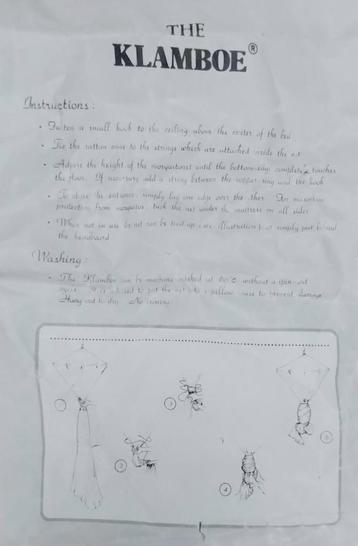 THE
KLAMBOE®
Instructions:
• Fasten a small hook to the ceiling above the center of the bed
• Tie the rattan to the strings which are attached inside the net
• Adjust the height of the mosquitonet until the bottom completely touches
the floor. If necessary add a string between the upper ring and the hook
• To close the entrance simply lay one edge over the other. For maximum
protection from mosquitos tuck the net under the mattress on all sides
• When not in use the net can be tied up (see illustration) or simply put behind
the headboard
Washing:
• The Klamboe can be machine washed at without a spin
cycle. It is advised to put the net into a pillow case to prevent damage
Hang out to dry. No ironing
1
2
3
4
5